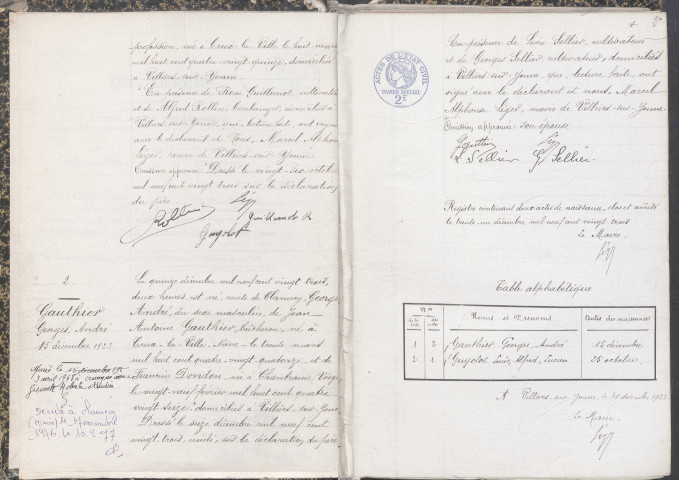 profession, née à Crux la Ville le huit
mil huit cent quatre vingt quinze, domiciliés
à Villiers-sur-Yonne
En présence de Pierre Guillemot, cultivateur
et de Alfred Rollin, boulanger, domiciliés à
Villiers-sur-Yonne, qui, lecture faite, ont signé
avec le déclarant et Nous, Marcel Alphonse
Léger, maire de Villiers-sur-Yonne
Omission approuvée: "Dressé le vingt-six octobre
mil neuf cent vingt trois sur la déclaration
du père
Rollin
Guillemot P.
Guyolot
2
Gauthier
Georges, André
15 décembre 1923
Le quinze décembre mil neuf cent vingt trois,
deux heures, est né, route de Clamecy, Georges
André, du sexe masculin, de Jean
Antoine Gauthier, bûcheron, né à
Crux-la-Ville, Nièvre le trente mars
mil huit cent quatre-vingt quatorze, et de
Francine Dordon, née à Chantraine, Vosges
le vingt-neuf février mil huit cent quatre
vingt seize, domiciliés à Villiers-sur-Yonne
Dressé le seize décembre mil neuf cent
vingt trois, midi, sur la déclaration du père.
Décédé à Clamecy
(Nièvre) le
2
En présence de Léon Sellier, cultivateur
et de Georges Sellier, cultivateur, domiciliés
à Villiers-sur-Yonne qui, lecture faite, ont
signé avec le déclarant et nous, Marcel
Alphonse Léger, maire de Villiers-sur-Yonne
Omission approuvée: son épouse
Gauthier
L. Sellier G. Sellier
ACTES DE L'ÉTAT CIVIL
PAPIER SPÉCIAL
2F
Registre contenant deux actes de naissance, clos et arrêté
le trente un décembre mil neuf cent vingt trois
Le Maire.
Table alphabétique
Nos
Noms et Prénoms
Dates des naissances
1 2 Gauthier Georges, André 15 décembre
2 1 Guyolot Louis, Alfred, Lucien 25 octobre
A Villiers-sur-Yonne, le 31 décembre 1923
Le Maire